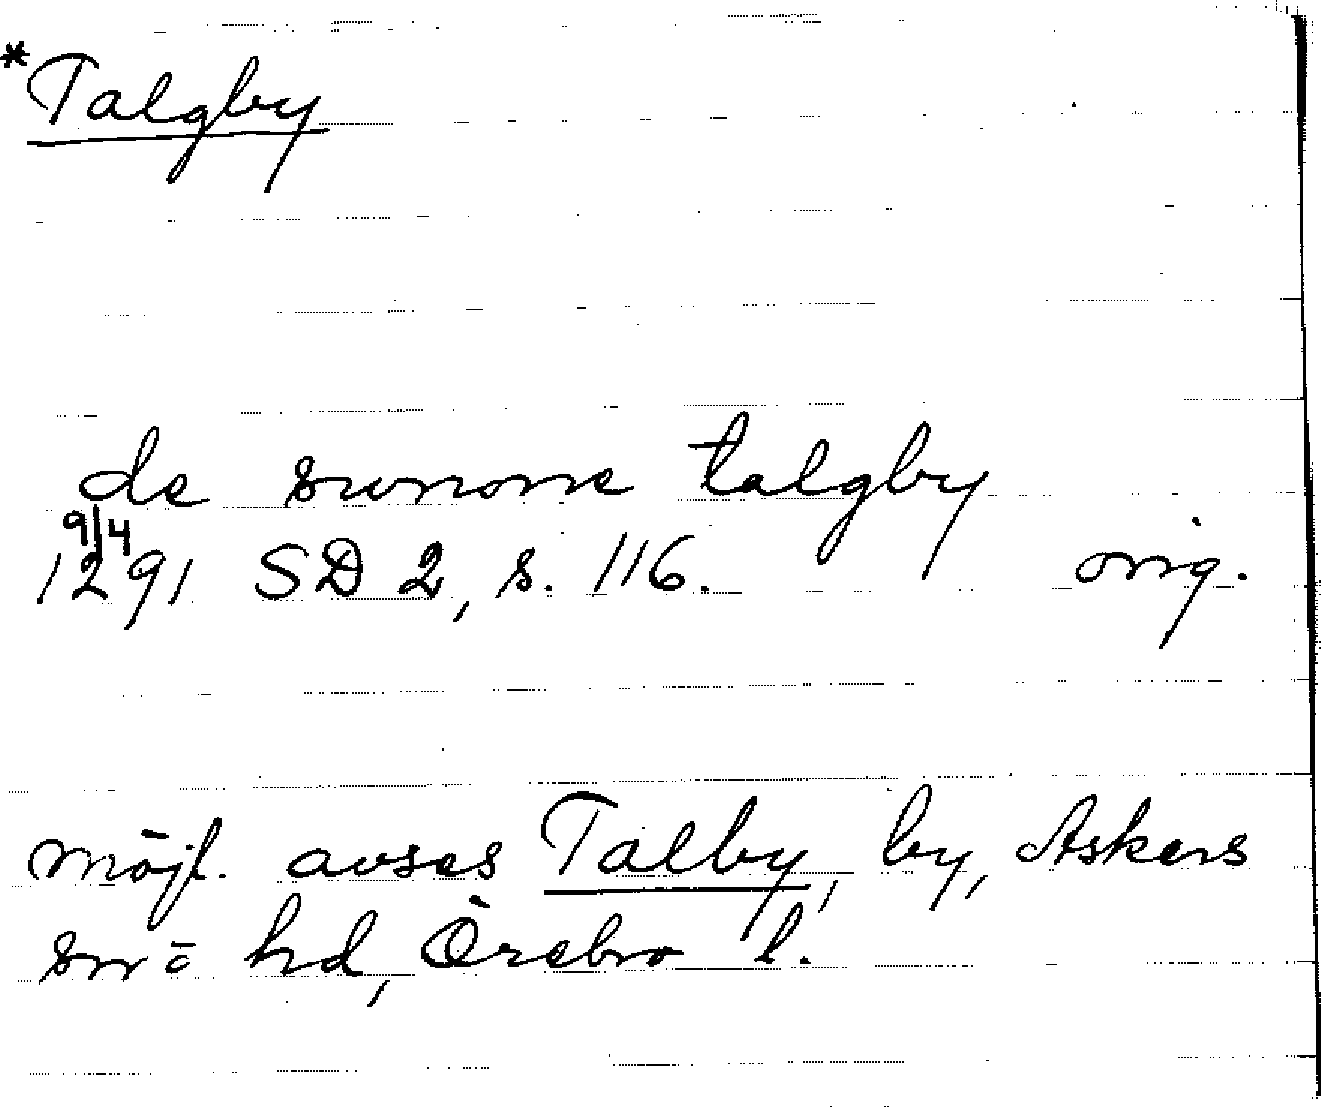 *Talgby
de sunone talgby
9/4
1291 SD 2, s. 116. orig.
möjl. avses Talby, by, Askers
sn o hd, Örebro l.